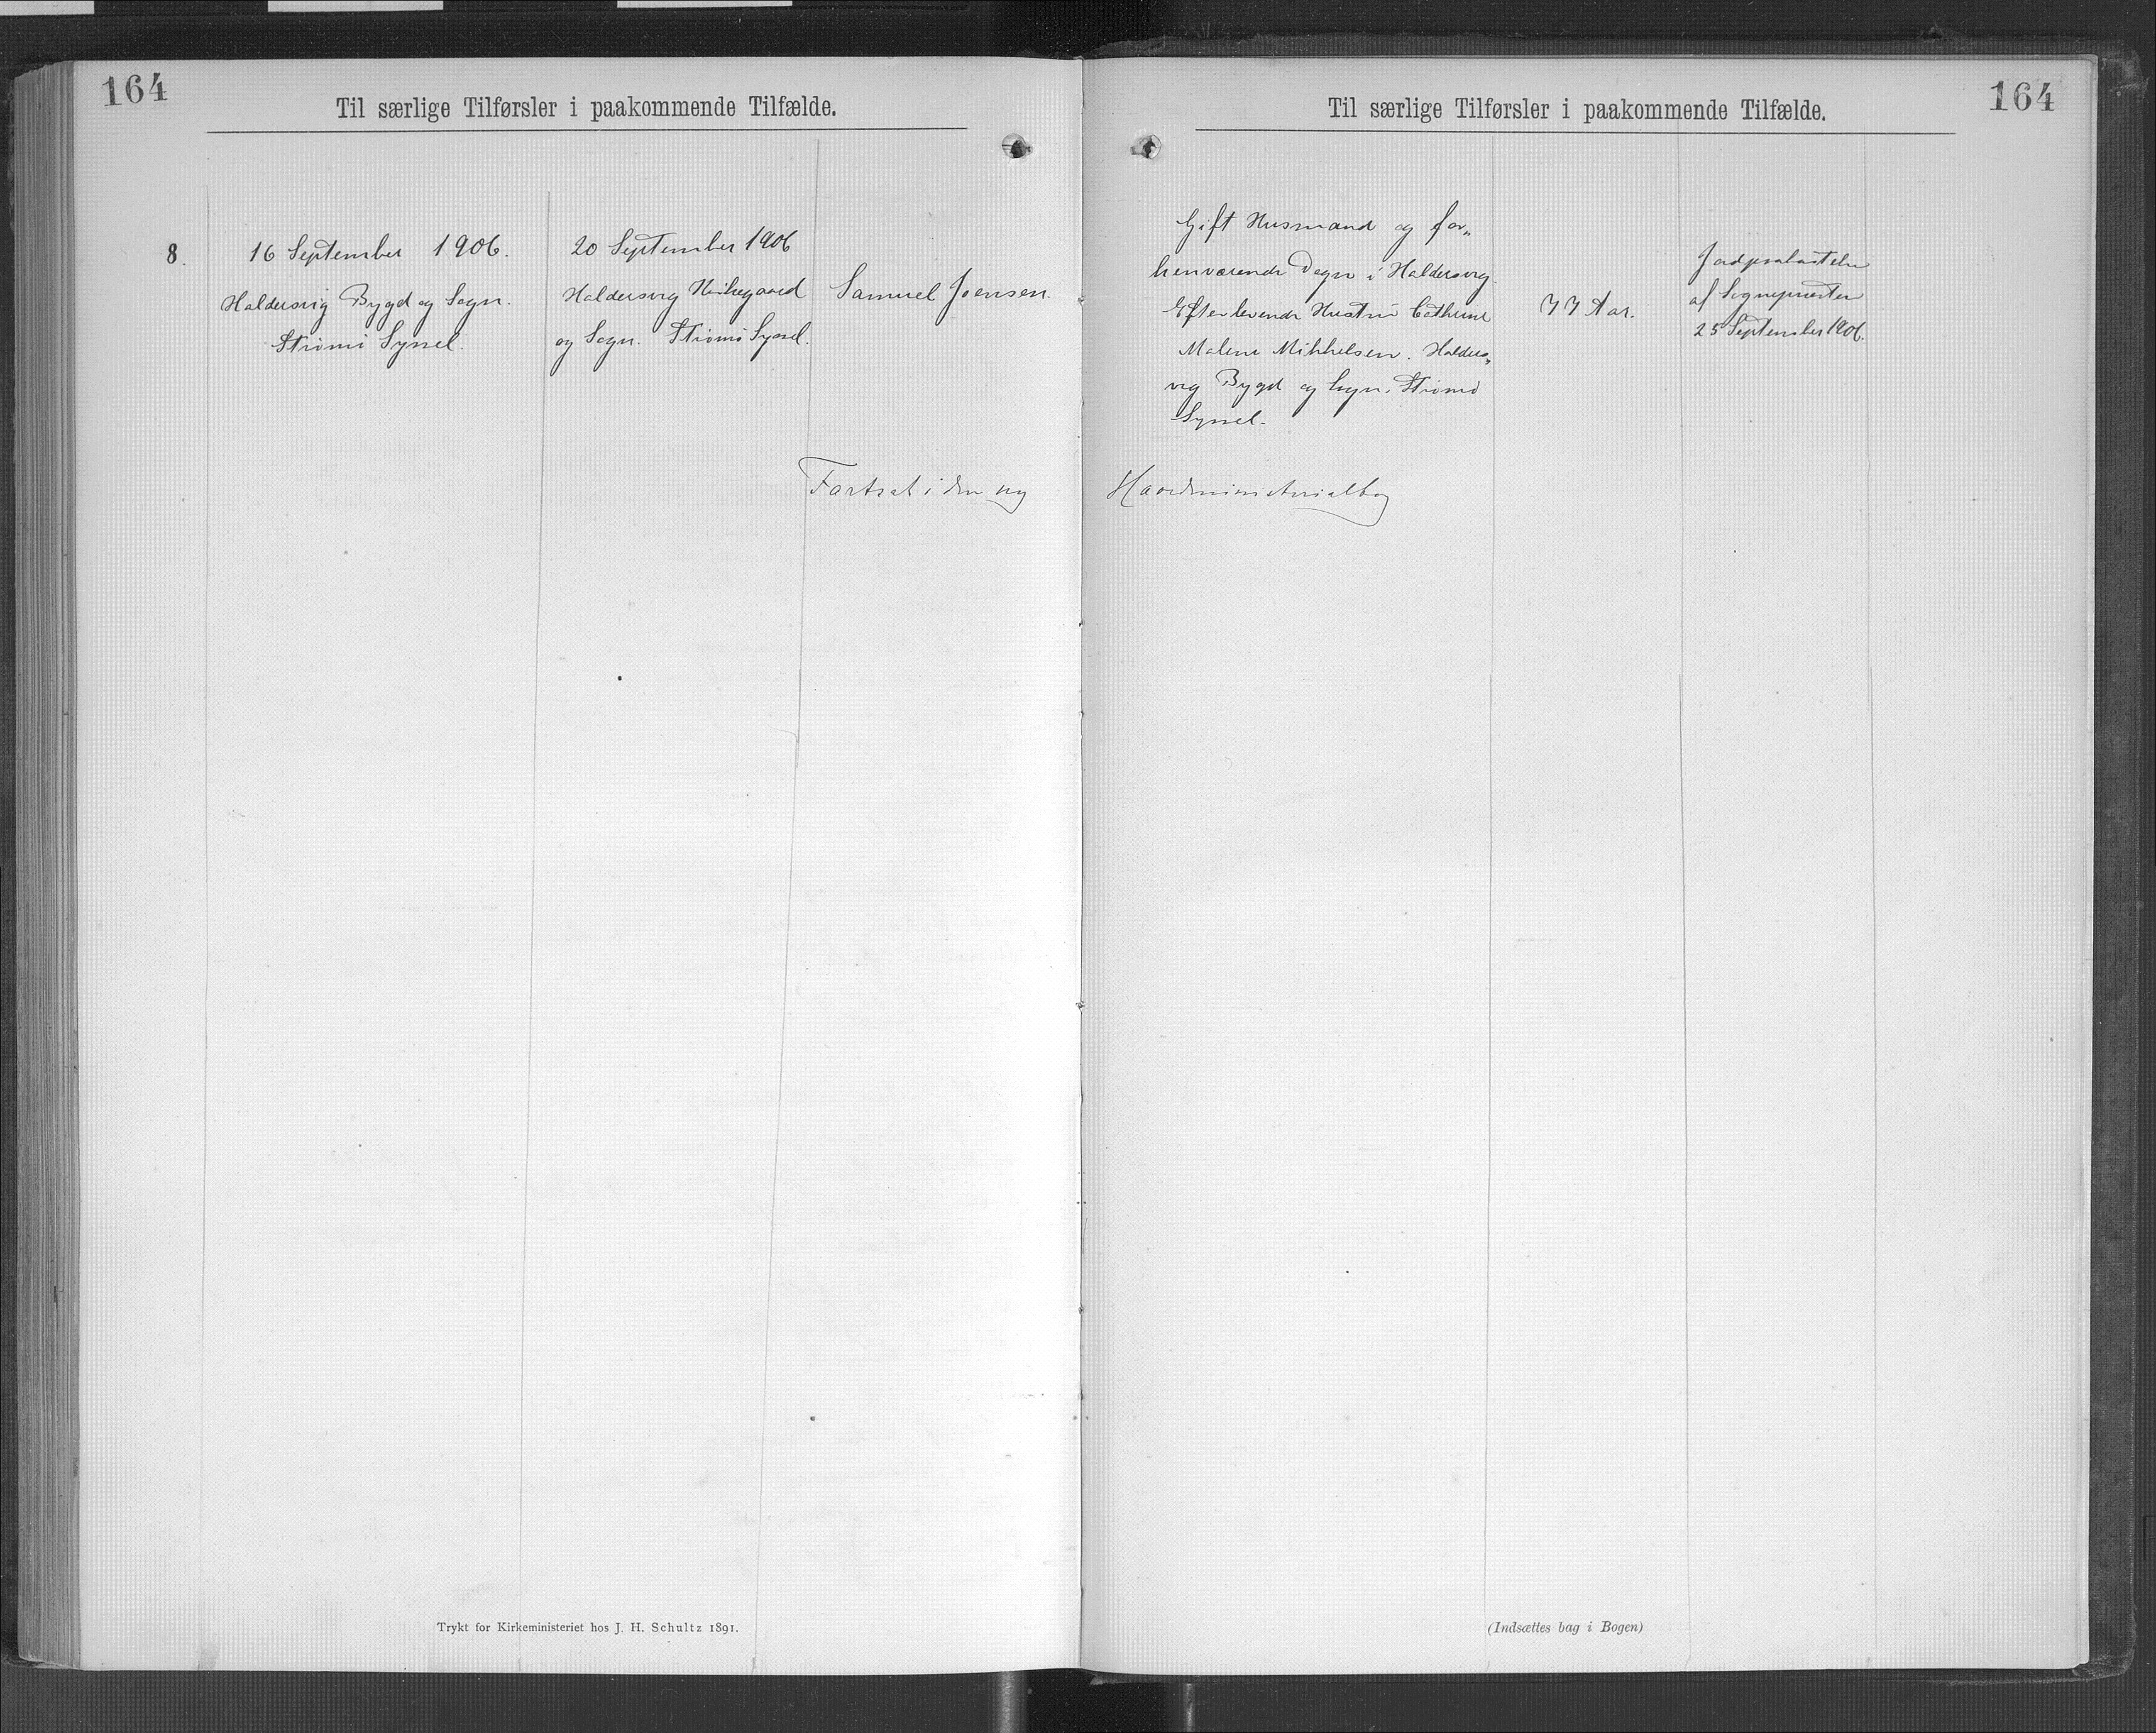 164
Til særlige Tilførsler i paakommende Tilfælde.
8.
16 September 1906.
Haldersvig Bygd og Sogn.
Strømø Syssel.
20 September 1906
Haldersvig Kirkegaard
og Sogn. Strømø Syssel.
Samuel Joensen.
Fortsat i den ny
Trykt for Kirkeministeriet hos J. H. Schultz 1891.
164
Til særlige Tilførsler i paakommende Tilfælde.
Gift Husmand og for„
henværende Degn i Haldersvig.
Efterlevende Hustru Cathrine
Malene Mikkelsen. Halders„
vig Bygd og Sogn. Strømø
Syssel.
77 Aar.
Jordpaakastelse
af Sognepræsten
25 September 1906.
Hovedministerialbog
(Indsættes bag i Bogen)